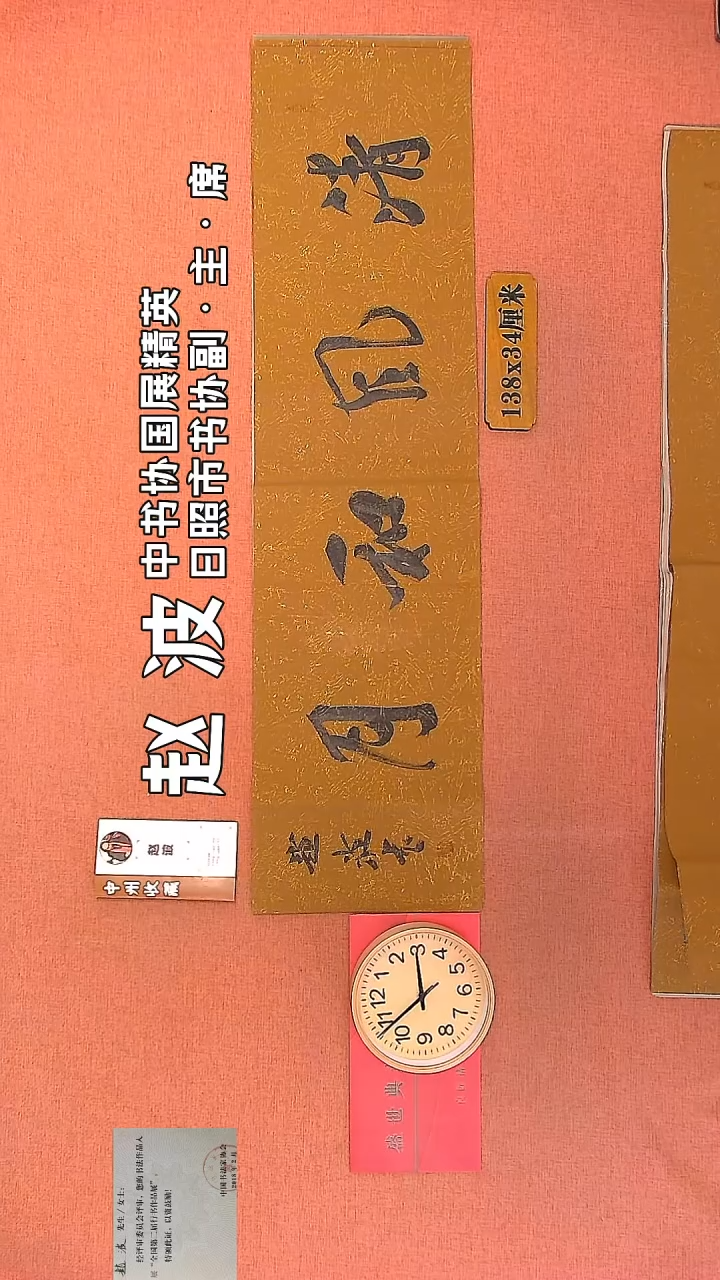 中书协国展精英
日照市书协副·主·席
赵波
清风和月
赵波书
138x34厘米
赵波
中州收展
12
1
2
3
4
5
6
7
8
9
10
11
盛世典
赵波 先生/女士:
经评审委员会评审,您的书法作品入
展“全国第二届行书作品展”,
特颁此证,以资鼓励!
中国书法家协会